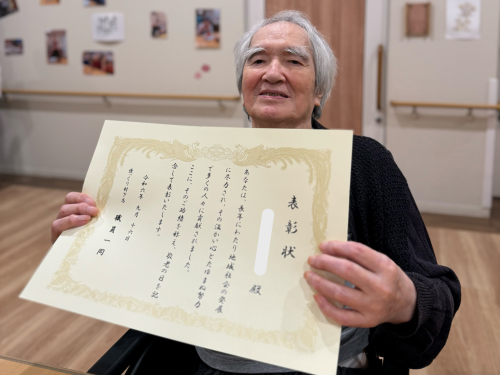 表彰状
殿
あなたは、長年にわたり地域社会の発展
に尽力され、その温かい心とたゆまぬ努力
で多くの人々に貢献されました。
ここに、そのご功績を称え、敬老の日を記
念して表彰いたします。
令和六年九月十六日
職員一同